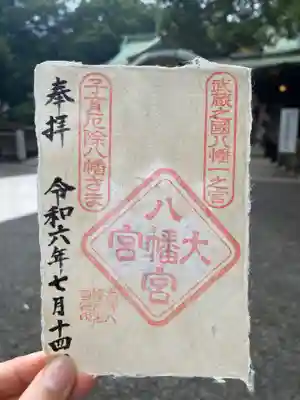 武蔵之國八幡一之宮
大
八幡宮
宮
子育厄除八幡さま
奉拝
令和六年七月十四